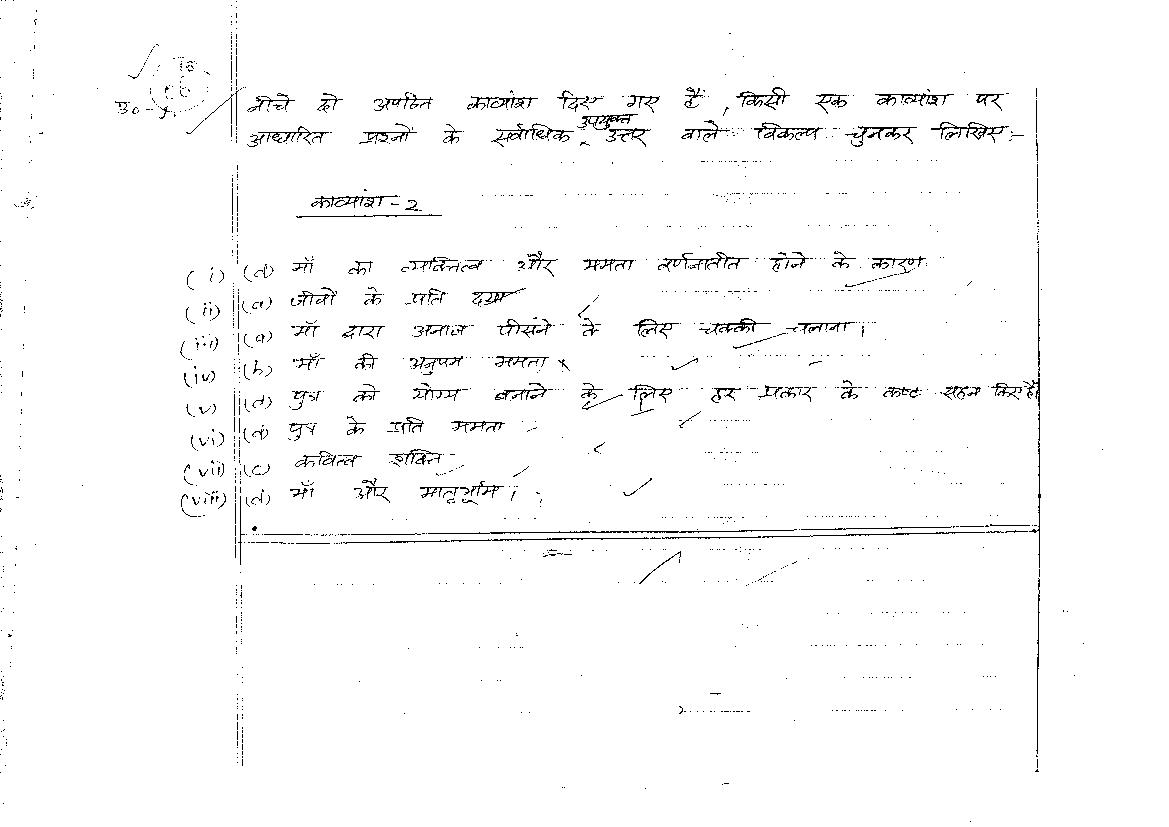 नीचे दो अपठित काव्यांश दिए गए हैं, किसी एक काव्यांश पर
आधारित प्रश्नों के सर्वाधिक उपयुक्त उत्तर वाले विकल्प चुनकर लिखिए :-
काव्यांश - 2
(i) (d) माँ का व्यक्तित्व और ममता वर्णनातीत होने के कारण
(ii) (a) जीवों के प्रति दया
(iii) (a) माँ द्वारा अनाज पीसने के लिए चक्की चलाना।
(iv) (b) माँ की अनुपम ममता
(v) (d) पुत्र को योग्य बनाने के लिए हर प्रकार के कष्ट सहन किए हैं
(vi) (d) पुत्र के प्रति ममता
(vii) (c) कवित्व शक्ति
(viii) (d) माँ और मातृभूमि।